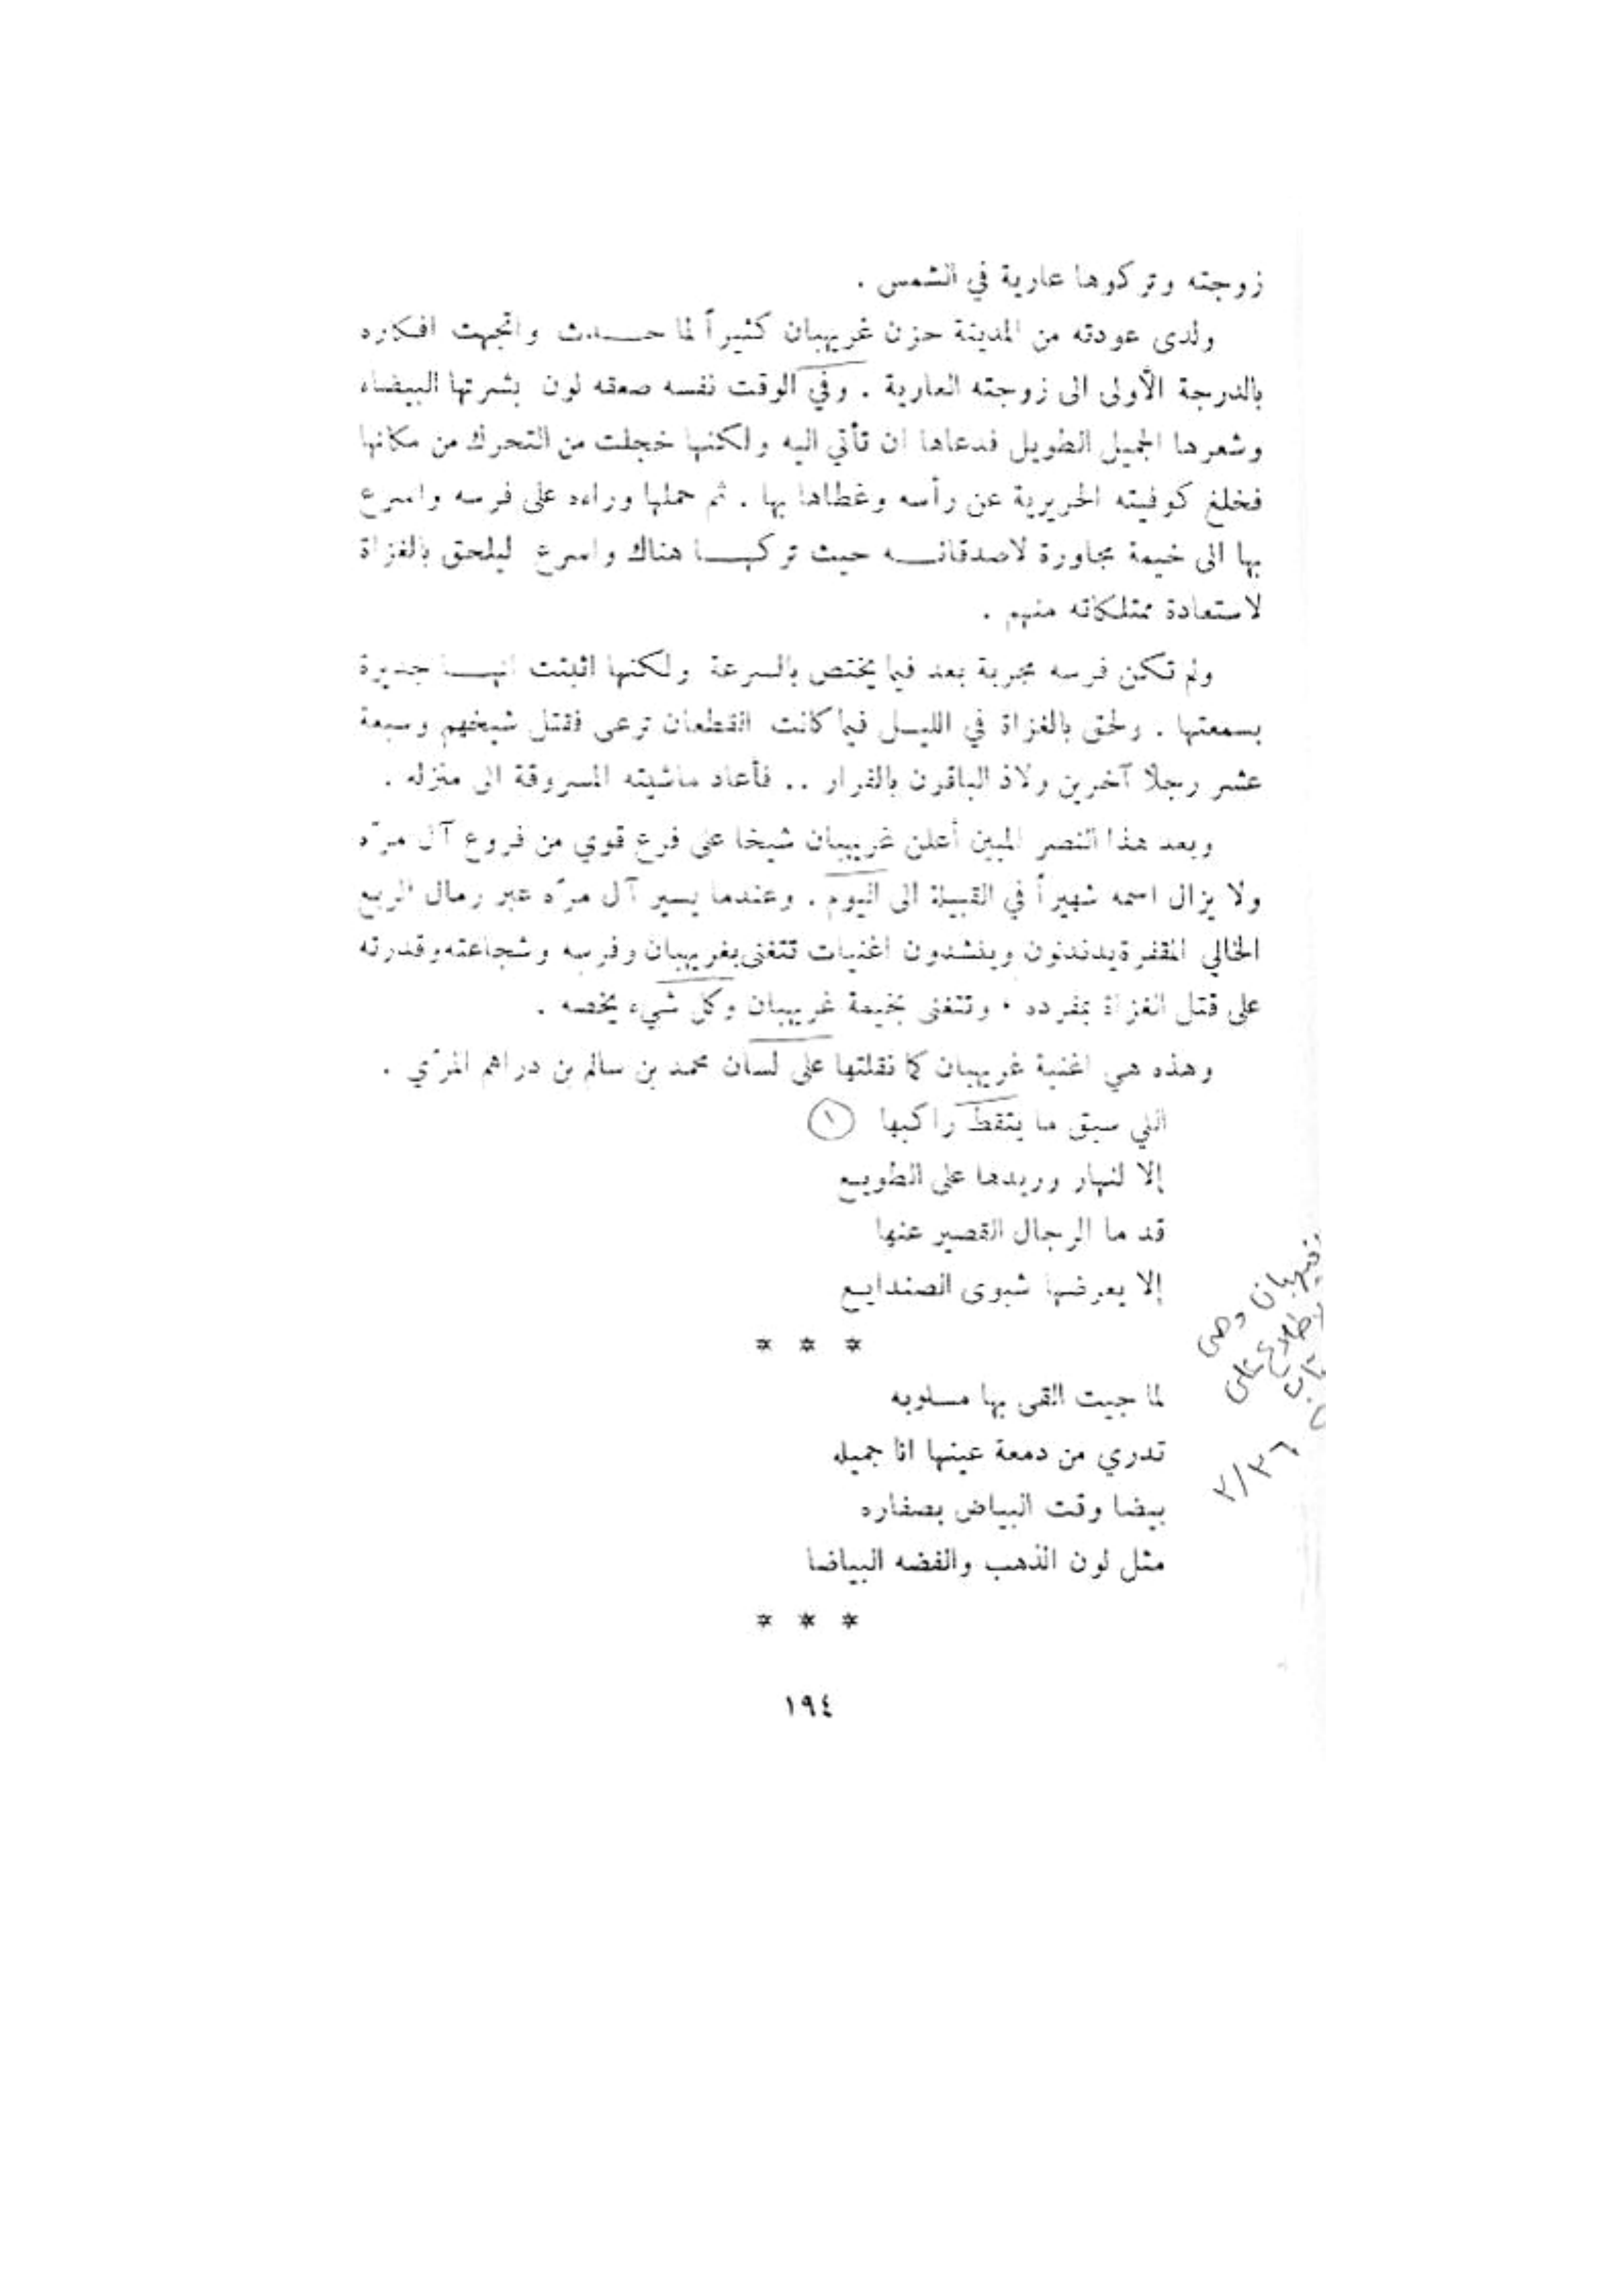 زوجته وتركوها عارية في الشمس .
ولدى عودته من المدينة حزن غريهبان كثيراً لما حـــدث واتجهت افكاره
بالدرجة الأولى الى زوجته العارية . وفي الوقت نفسه صعقه لون بشرتها البيضاء
وشعرها الجميل الطويل فدعاها ان تأتي اليه ولكنها خجلت من التحرك من مكانها
فخلع كوفيته الحريرية عن رأسه وغطاها بها . ثم حملها وراءه على فرسه واسرع
بها الى خيمة مجاورة لاصدقائــه حيث تركهــا هناك واسرع ليلحق بالغزاة
لاستعادة ممتلكاته منهم .
ولم تكن فرسه مجربة بعد فيما يختص بالسرعة ولكنها اثبتت انهــا جديرة
بسمعتها . ولحق بالغزاة في الليــل فيما كانت القطعان ترعى فقتل شيخهم وسبعة
عشر رجلا آخرين ولاذ الباقون بالفرار .. فأعاد ماشيته المسروقة الى منزله .
وبعد هذا النصر المبين أعلن غريهبان شيخا على فرع قوي من فروع آل مرّه
ولا يزال اسمه شهيراً في القبيلة الى اليوم . وعندما يسير آل مرّه عبر رمال الربع
الخالي المقفرة يدندنون وينشدون اغنيات تتغنى بغريهبان وفرسه وشجاعته وقدرته
على قتل الغزاة بمفرده . وتتغنى بخيمة غريهبان وكل شيء يخصه .
وهذه هي اغنية غريهبان كما نقلتها على لسان محمد بن سالم بن دراهم المرّي .
اللي سبق ما يتقط راكبها ١
إلا لنهار وريدها على الطويــع
قد ما الرجال القصير عنها
إلا يعرضها شبوى الصندايــع
* * *
لما جيت القى بها مسلوبه
تدري من دمعة عينها انا جميله
بيضا وقت البياض بصفاره
مثل لون الذهب والفضه البياضا
* * *
١٩٤
٢/٢٦